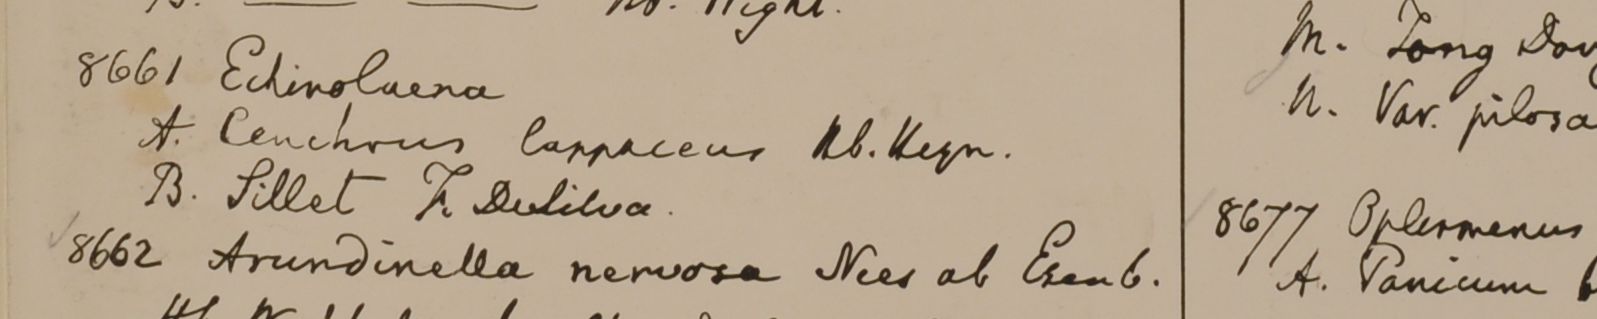 8661 Echinolaena
A. Cenchrus lappaceus Hb. Heyn.
B. Sillet F. DeSilva.
8662 Arundinella nervosa Nees ab Esenb.
M. Tong Dong
N. Var. pilosa
8677 Oplismenus
A. Panicum